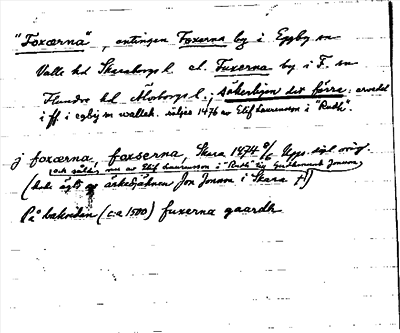 "Foxærna", antingen Foxerna by i Eggby sn
Valle hd Skaraborgs l el. Fuxerna by i F. sn
Flundre hd Älvsborgs l; säkerligen det förra: arvedel
i ff. i egby sn walleh. säljes 1476 av Elif Laurensson i "Rudh".
j foxærna, foxserna, Skara 1474 6/6 Upps. sigl. orig.
(och sålde nu av Elif Laurensson i "Rudh" till Gudmund Jonsson
(hade ägts av ärkedjäknen Jon Jonsson i Skara †)
På baksidan (c:a 1500) fuxerna gaardh